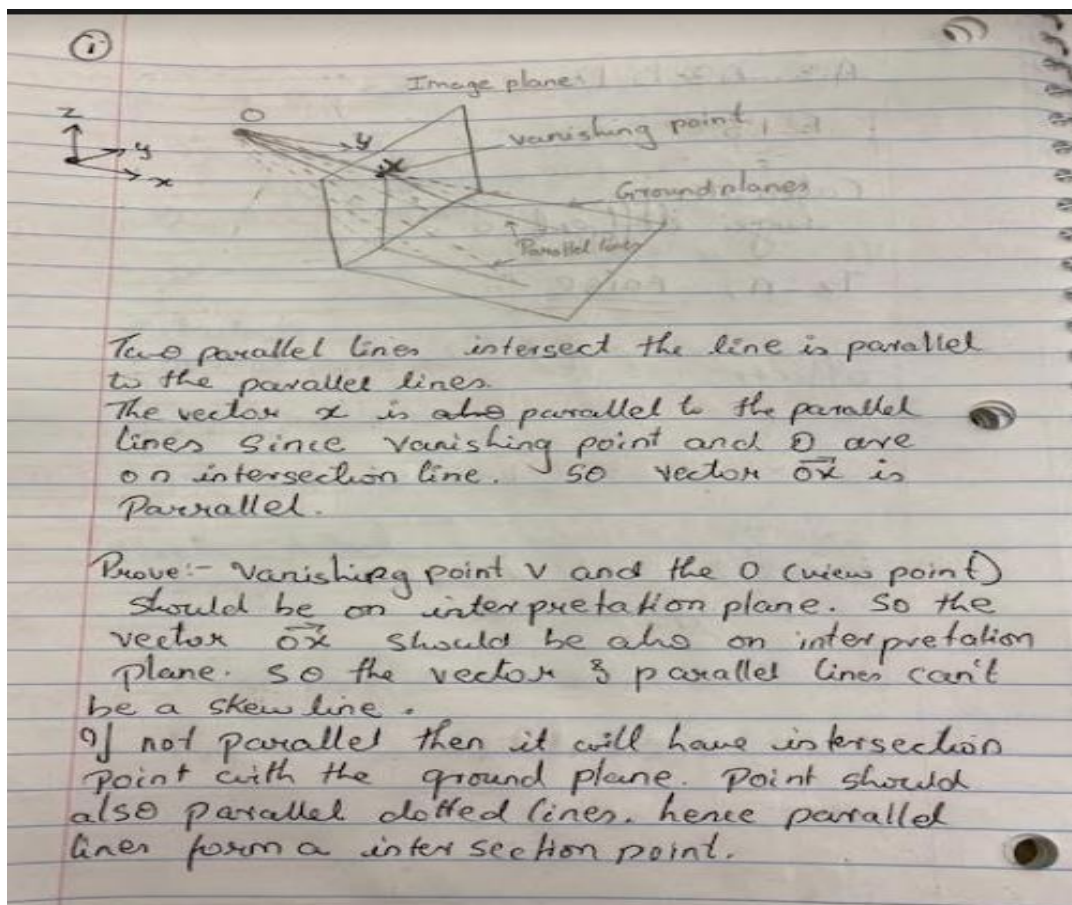 ①
Image plane
z
y
x
O
y
x
vanishing point
Ground planes
Parallel lines
Two parallel lines intersect the line is parallel
to the parallel lines.
The vector x is also parallel to the parallel
lines Since vanishing point and O are
on intersection line. so vector ox is
Parrallel.
Prove:- Vanishing point v and the O (view point)
should be on interpretation plane. So the
vector ox should be also on interpretation
plane. so the vector & parallel lines can't
be a skew line.
If not parallel then it will have intersection
point with the ground plane. Point should
also parallel dotted lines. hence parallel
lines form a intersection point.